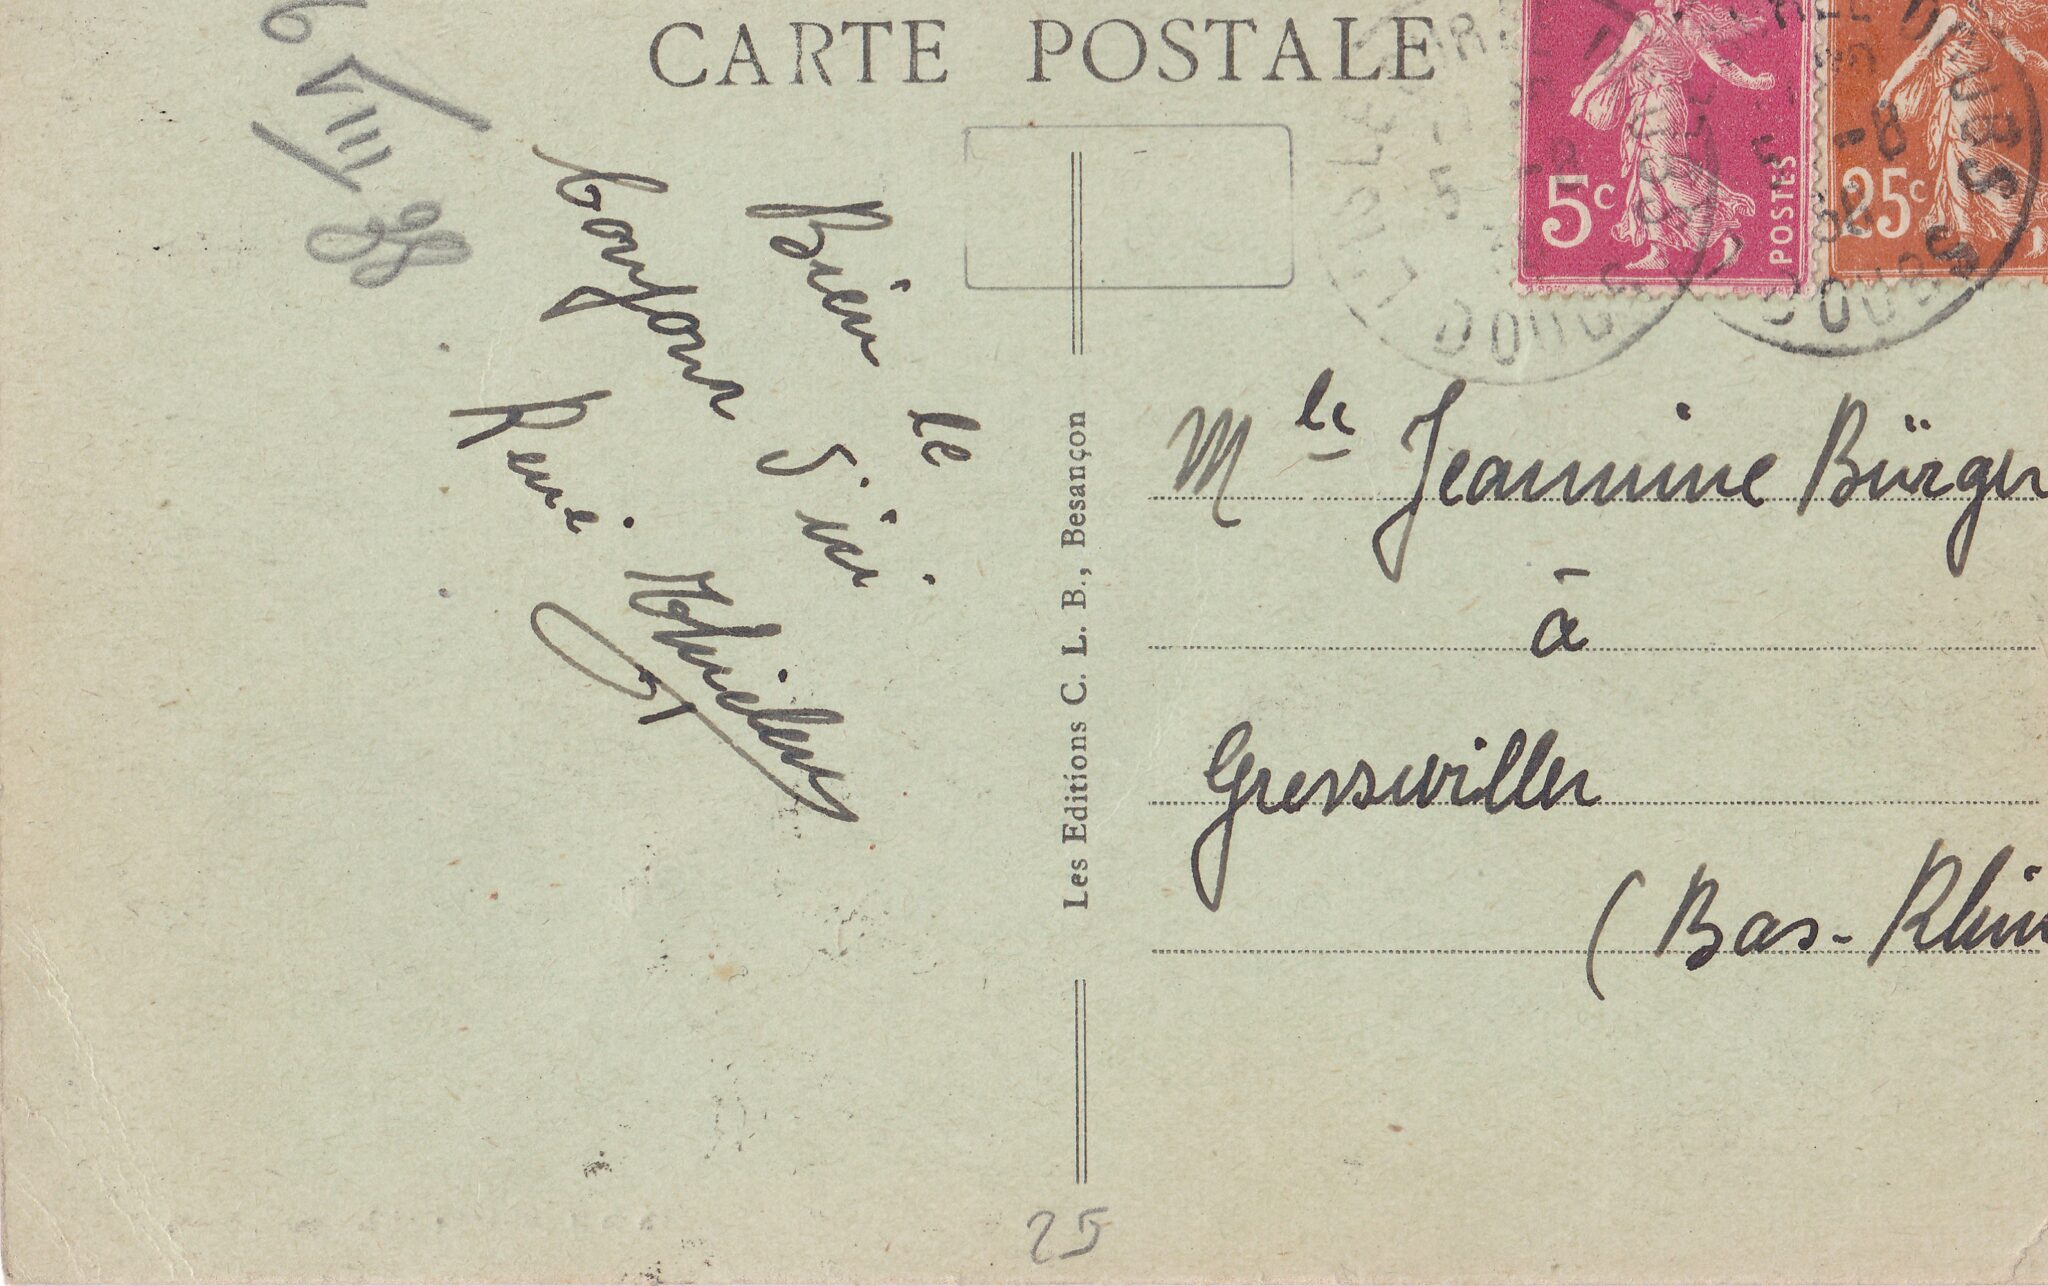 CARTE POSTALE
6 VIII 38
Bien le
bonjour d'ici.
René
5c
POSTES
25c
DOUBS
Les Editions C. L. B., Besançon
Mlle Jeannine Bürger
à
Gresswiller
(Bas-Rhin
25